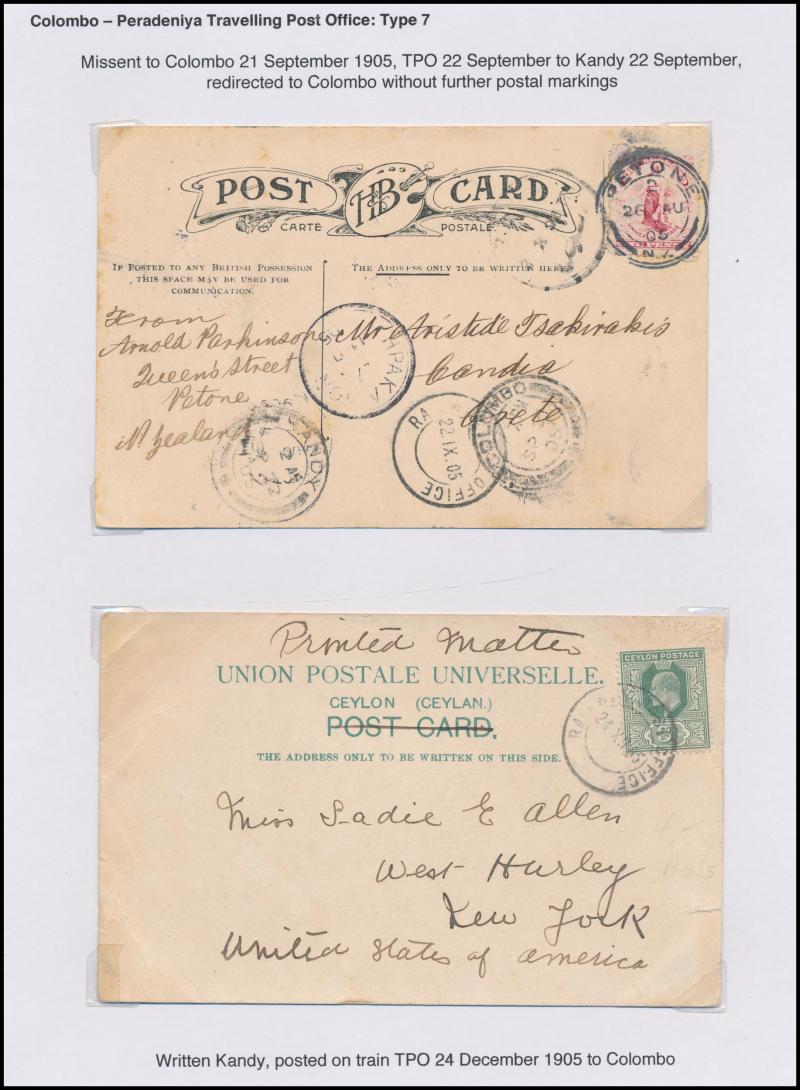 Colombo – Peradeniya Travelling Post Office: Type 7
Missent to Colombo 21 September 1905, TPO 22 September to Kandy 22 September,
redirected to Colombo without further postal markings
POST HB CARD
CARTE POSTALE
PETONE
2
26 AU
05
N.Z.
IF POSTED TO ANY BRITISH POSSESSION
THIS SPACE MAY BE USED FOR
COMMUNICATION.
THE ADDRESS ONLY TO BE WRITTEN HERE.
From
Arnold Parkinson
Queen's Street
Petone
N. Zealand
Mr Aristide Tsakirakis
Candia
Crete
COLOMBO
22 IX. 05
OFFICE
KANDY
Printed Matter
UNION POSTALE UNIVERSELLE.
CEYLON (CEYLAN.)
POST CARD.
THE ADDRESS ONLY TO BE WRITTEN ON THIS SIDE.
CEYLON POSTAGE
OFFICE
Miss Sadie E Allen
West Hurley
New York
United States of America
Written Kandy, posted on train TPO 24 December 1905 to Colombo